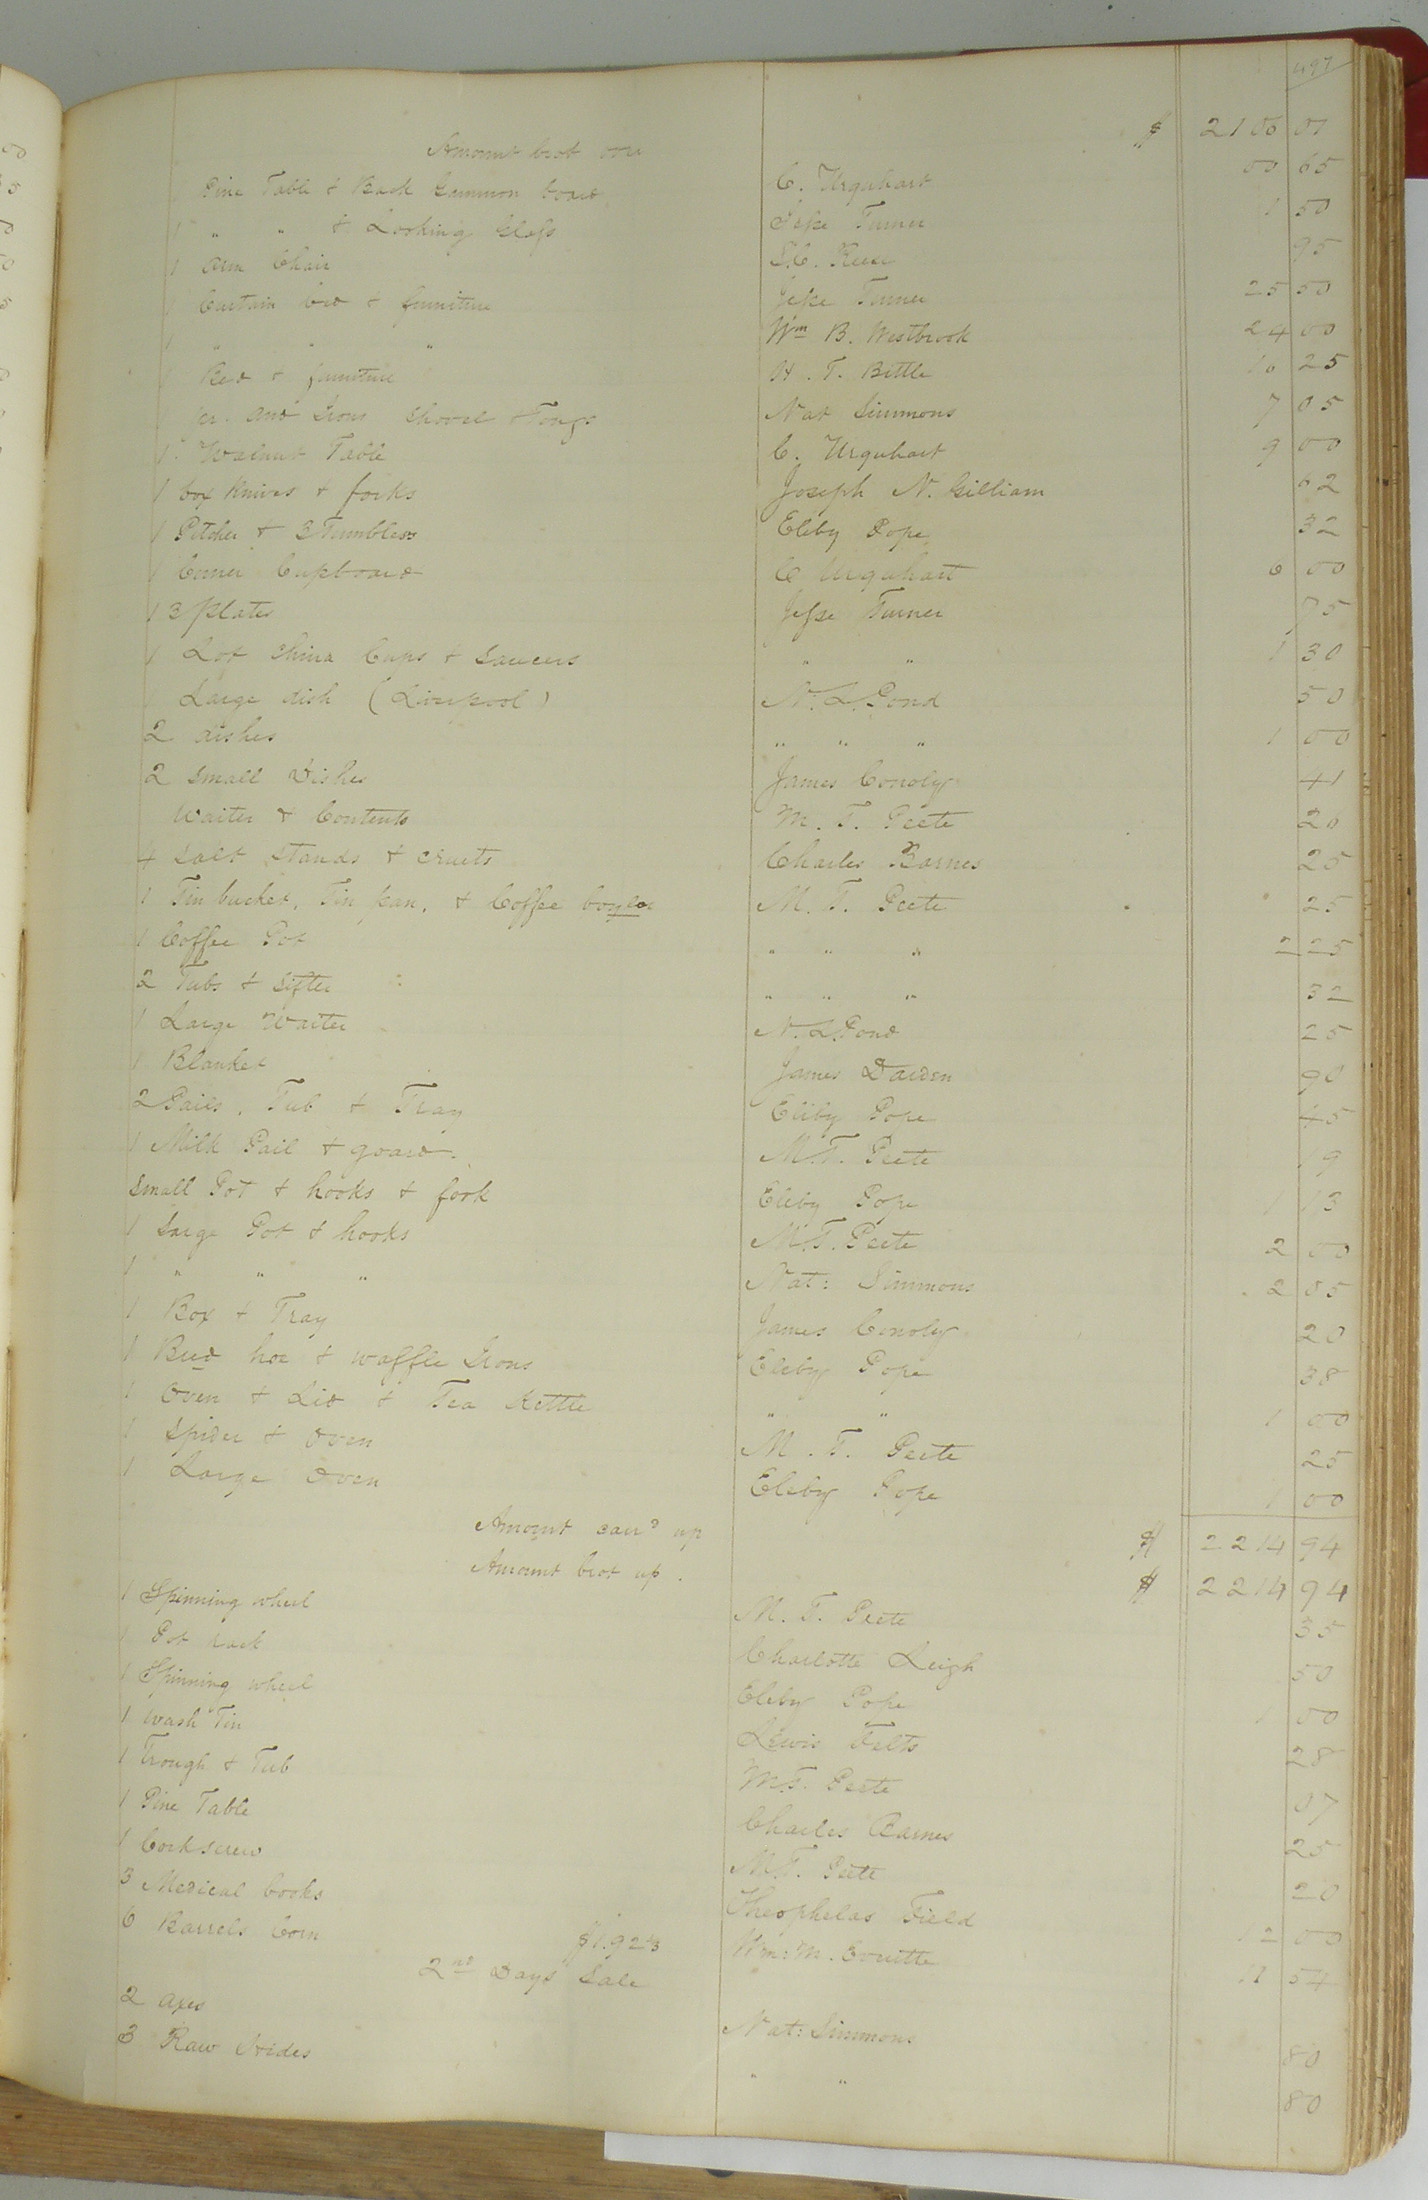 497
Amount brot over $ 2100 01
Pine Table & Back Gammon board C. Urquhart 00 65
1 " " & Looking Glass Jesse Turner 1 50
1 Arm Chair 95
1 Curtain bed & furniture Jesse Turner 25 50
1 " " " Wm B. Westbrook 24 00
1 Bed & furniture H. T. Bittle 16 25
1 pr. And Irons Shovel & Tongs Nat Simmons 7 05
1 Walnut Table C. Urquhart 9 00
1 box knives & forks Joseph N. Gilliam 62
1 Pitcher & 3 Tumblers Eleby Pope 32
1 Corner Cupboard C Urquhart 6 00
1 3 plates Jesse Turner 75
1 Lot China Cups & Saucers " " 1 30
1 Large dish (Liverpool) N. L. Pond 50
2 dishes " " " 1 00
2 Small Dishes James Conoly 41
Waiter & Contents M. T. Peete 20
4 Salt Stands & cruets Charles Barnes 25
1 Tin bucket, Tin pan, & Coffee boyler M. T. Peete 25
1 Coffee Pot " " " 2 25
2 Tubs & Sifter " " " 32
1 Large Waiter N. L. Pond 25
1 Blanket James Darden 90
2 Pails, Tub & Tray Eliby Pope 45
1 Milk Pail & goard. M. T. Peete 19
Small Pot & hooks & fork Eleby Pope 1 13
1 Large Pot & hooks M. T. Peete 2 00
1 " " " Nat: Simmons 2 05
1 Box & Tray James Conoly 20
1 Bred hoe & waffle Irons Eleby Pope 38
1 Oven & Lid & Tea Kettle " " 1 00
1 Spider & Oven M. T. Peete 25
1 Large Oven Eleby Pope 1 00
Amount carrd up $ 2214 94
Amount brot up. $ 2214 94
1 Spinning wheel M. T. Peete 35
1 Pot rack Charlotte Leigh 50
1 Spinning wheel Eleby Pope 1 00
1 Wash Tin Lewis Felts 28
1 Trough & Tub M. T. Peete 07
1 Pine Table Charles Barnes 25
1 Corkscrew M. T. Peete 20
3 Medical books Theophelas Field 12 00
6 Barrels Corn $1.92 3 Wm: M. 11 54
2nd Days Sale
2 axes Nat: Simmons 80
3 Raw Hides " " 80